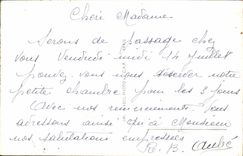 Chère Madame
Serons de passage chez
vous Vendredi midi 14 Juillet
pourez vous nous réserver notre
petite chambre pour les 3 jours
Avec nos remerciements vous
adressons ainsi qu'à Monsieur
nos salutations empressées
R. B. André